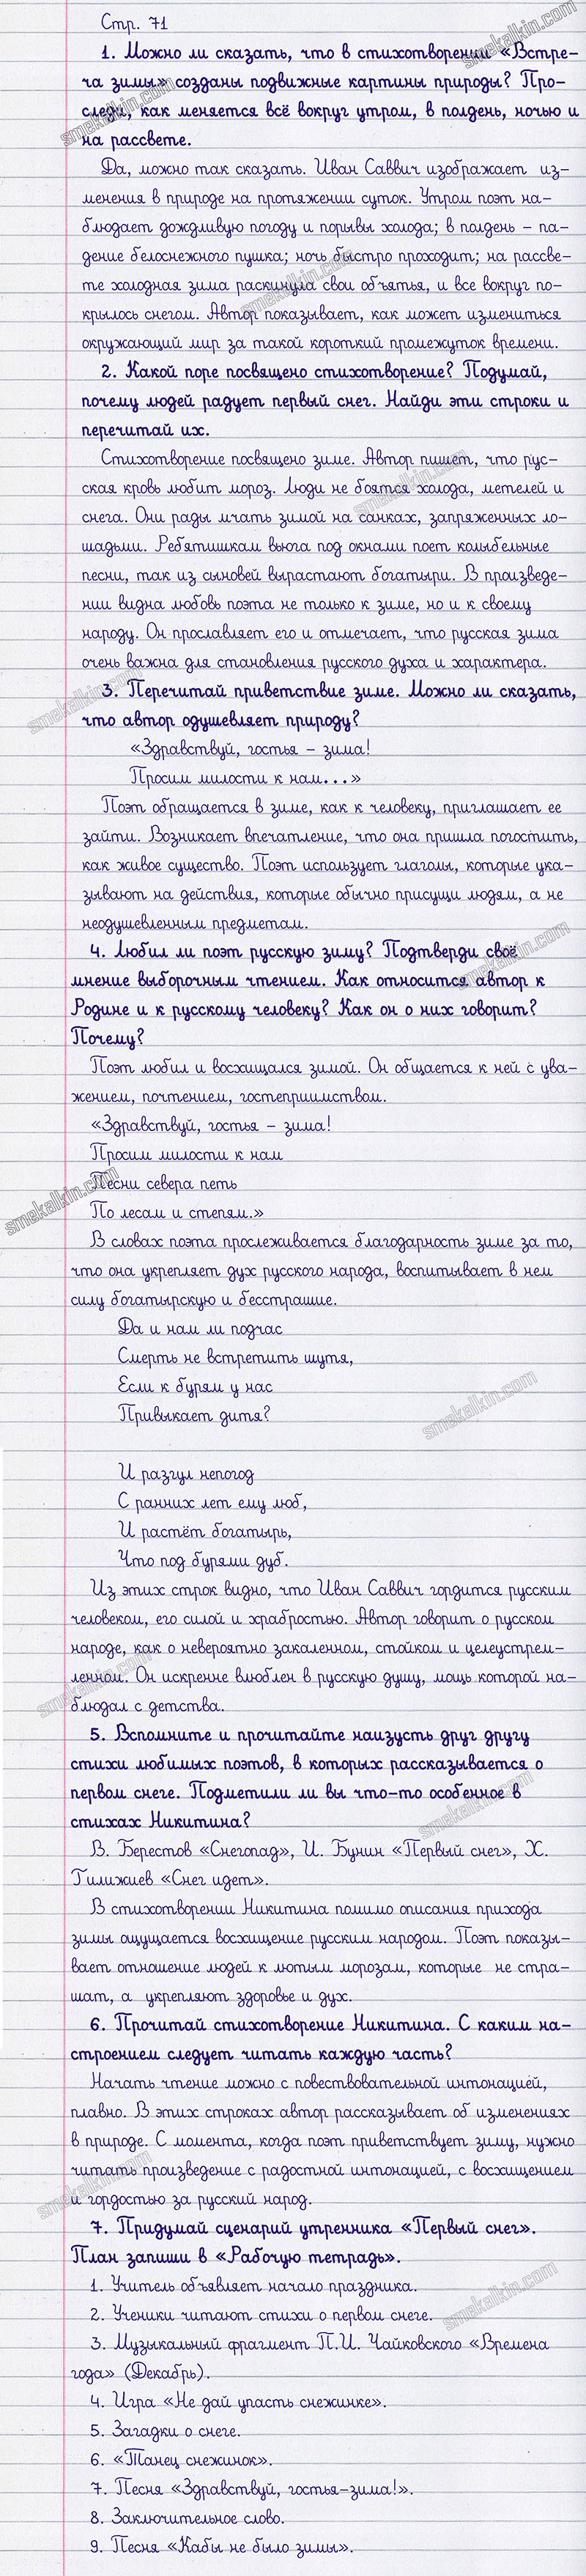 Стр. 71
1. Можно ли сказать, что в стихотворении «Встре-
ча зимы» созданы подвижные картины природы? Про-
следи, как меняется всё вокруг утром, в полдень, ночью и
на рассвете.
Да, можно так сказать. Иван Саввич изображает из-
менения в природе на протяжении суток. Утром поэт на-
блюдает дождливую погоду и порывы холода; в полдень – па-
дение белоснежного пушка; ночь быстро проходит; на рассве-
те холодная зима раскинула свои объятья, и все вокруг по-
крылось снегом. Автор показывает, как может измениться
окружающий мир за такой короткий промежуток времени.
2. Какой поре посвящено стихотворение? Подумай,
почему людей радует первый снег. Найди эти строки и
перечитай их.
Стихотворение посвящено зиме. Автор пишет, что рус-
ская кровь любит мороз. Люди не боятся холода, метелей и
снега. Они рады мчать зимой на санках, запряженных ло-
шадьми. Ребятишкам вьюга под окнами поет колыбельные
песни, так из сыновей вырастают богатыри. В произведе-
нии видна любовь поэта не только к зиме, но и к своему
народу. Он прославляет его и отмечает, что русская зима
очень важна для становления русского духа и характера.
3. Перечитай приветствие зиме. Можно ли сказать,
что автор одушевляет природу?
«Здравствуй, гостья – зима!
Просим милости к нам...»
Поэт обращается в зиме, как к человеку, приглашает ее
зайти. Возникает впечатление, что она пришла погостить,
как живое существо. Поэт использует глаголы, которые ука-
зывают на действия, которые обычно присущи людям, а не
неодушевленным предметам.
4. Любил ли поэт русскую зиму? Подтверди своё
мнение выборочным чтением. Как относится автор к
Родине и к русскому человеку? Как он о них говорит?
Почему?
Поэт любил и восхищался зимой. Он общается к ней с ува-
жением, почтением, гостеприимством.
«Здравствуй, гостья – зима!
Просим милости к нам
Песни севера петь
По лесам и степям.»
В словах поэта прослеживается благодарность зиме за то,
что она укрепляет дух русского народа, воспитывает в нем
силу богатырскую и бесстрашие.
Да и нам ли подчас
Смерть не встретить шутя,
Если к бурям у нас
Привыкает дитя?
И разгул непогод
С ранних лет ему люб,
И растёт богатырь,
Что под бурями дуб.
Из этих строк видно, что Иван Саввич гордится русским
человеком, его силой и храбростью. Автор говорит о русском
народе, как о невероятно закаленном, стойком и целеустрем-
ленном. Он искренне влюблен в русскую душу, мощь которой на-
блюдал с детства.
5. Вспомните и прочитайте наизусть друг другу
стихи любимых поэтов, в которых рассказывается о
первом снеге. Подметили ли вы что-то особенное в
стихах Никитина?
В. Берестов «Снегопад», И. Бунин «Первый снег», Х.
Гилижиев «Снег идет».
В стихотворении Никитина помимо описания прихода
зимы ощущается восхищение русским народом. Поэт показы-
вает отношение людей к лютым морозам, которые не стра-
шат, а укрепляют здоровье и дух.
6. Прочитай стихотворение Никитина. С каким на-
строением следует читать каждую часть?
Начать чтение можно с повествовательной интонацией,
плавно. В этих строках автор рассказывает об изменениях
в природе. С момента, когда поэт приветствует зиму, нужно
читать произведение с радостной интонацией, с восхищением
и гордостью за русский народ.
7. Придумай сценарий утренника «Первый снег».
План запиши в «Рабочую тетрадь».
1. Учитель объявляет начало праздника.
2. Ученики читают стихи о первом снеге.
3. Музыкальный фрагмент П.И. Чайковского «Времена
года» (Декабрь).
4. Игра «Не дай упасть снежинке».
5. Загадки о снеге.
6. «Танец снежинок».
7. Песня «Здравствуй, гостья-зима!».
8. Заключительное слово.
9. Песня «Кабы не было зимы».
smekalkin.com
smekalkin.com
smekalkin.com
smekalkin.com
smekalkin.com
smekalkin.com
smekalkin.com
smekalkin.com
smekalkin.com
smekalkin.com
smekalkin.com
smekalkin.com